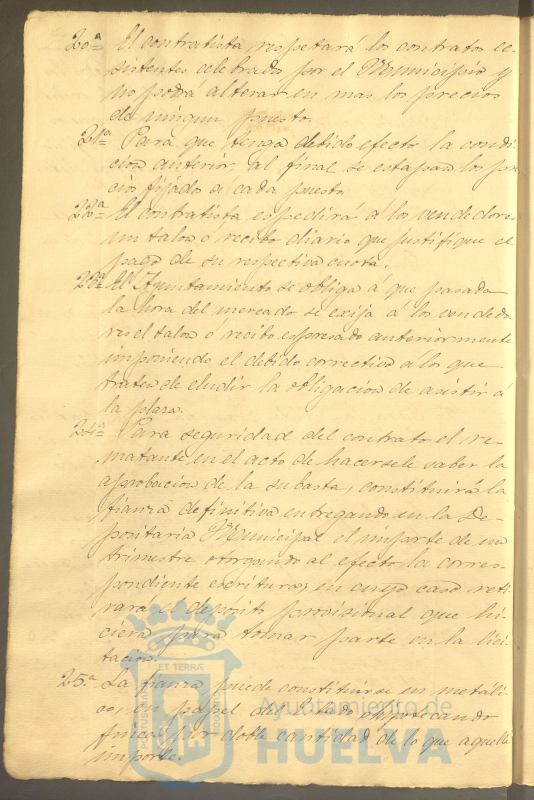 20ª El contratista respetará los contratos ec-
sistentes celebrados por el Municipio y
no podrá alterar en mas los precios
de ningun puesto.
21ª Para que tenga debido efecto la condi-
cion anterior, al final se estapan los pre-
cio fijado a cada puesto
22ª El contratista espedirá á los vendedores
un talon ó recibo diario que justifique el
pago de su respectiva cuota.
23ª El Ayuntamiento se obliga á que pasada
la hora del mercado se exija á los vendedo-
res el talon ó recibo espresado anteriormente
imponiendo el debido correctivo a los que
traten de eludir la obligacion de asistir á
la plaza.
24ª Para seguridad del contrato el re-
matante, en el acto de hacersele saber la
aprobacion de la subasta, constituirá la
fianza definitiva entregando en la De-
positaria Municipal el importe de un
trimestre otorgando al efecto la corres-
pondiente escritura, en cuyo caso reti-
rará el depósito provisional que hi-
ciera para tomar parte en la lici-
tacion.
25ª La fianza puede constituirse en metáli-
co, en papel del Estado ó hipotecando
finca por doble cantidad de lo que aquella
importe.
ET TERRÆ
Ayuntamiento de
HUELVA